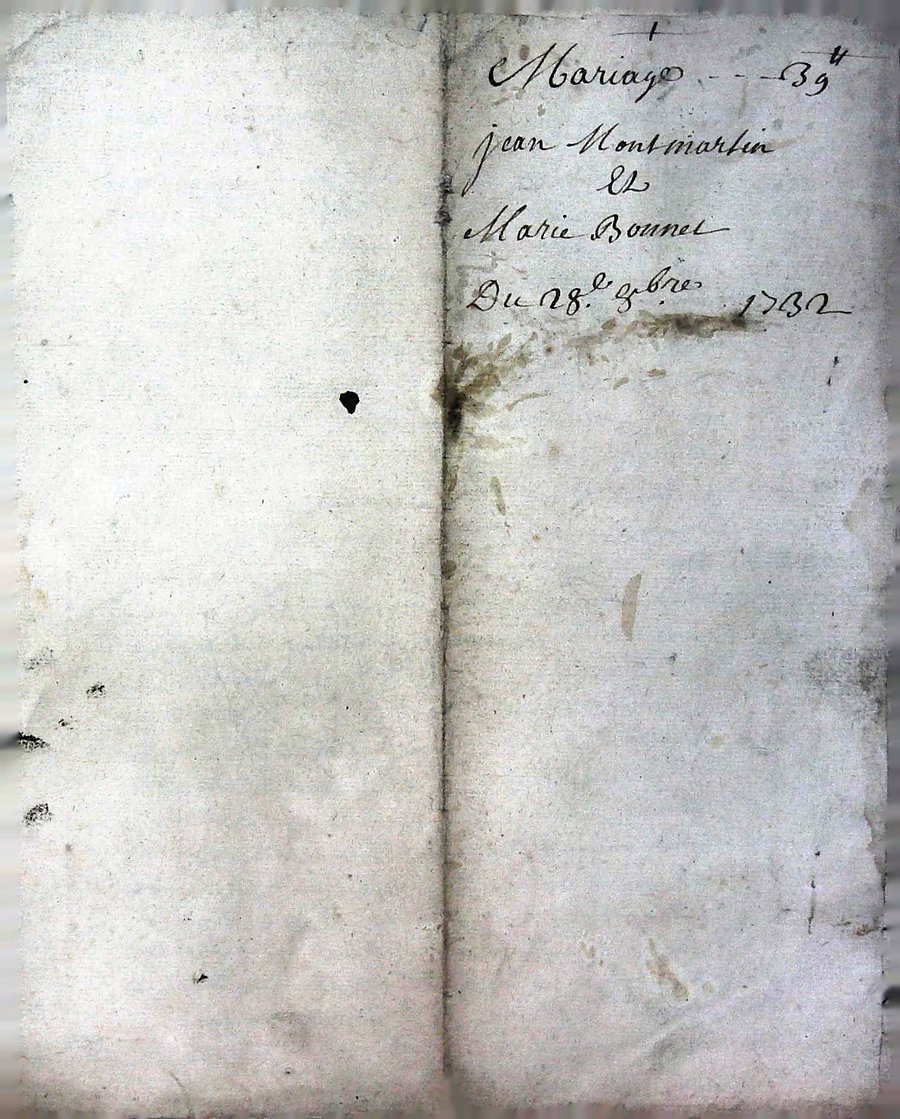 Mariage - - - 39ᵗᵗ
jean Montmartin
Et
Marie Bonnet
Du 28.ᵉ 8.ᵇʳᵉ 1732